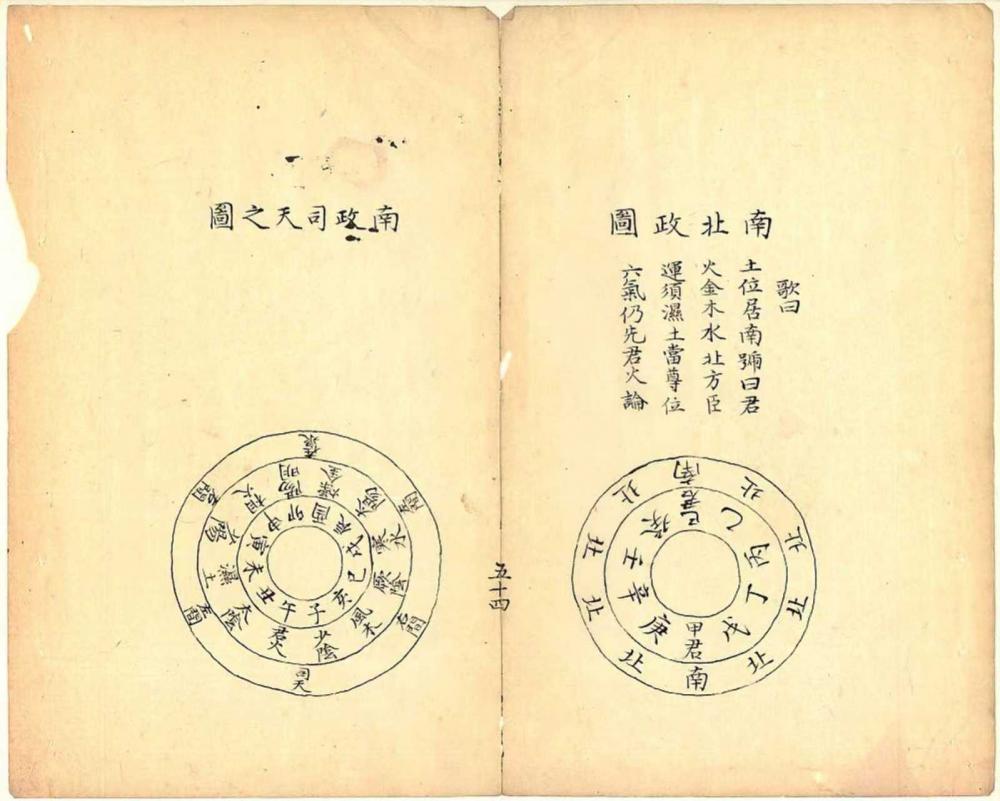 南北政圖
歌曰
土位居南號曰君
火金木水北方臣
運須濕土當尊位
六氣仍先君火論
甲君
乙
丙
丁
戊
己君
庚
辛
壬
癸
南
北
北
北
北
南
北
北
北
北
五十四
南政司天之圖
子午
丑未
寅申
卯酉
辰戌
巳亥
少陰
君火
太陰
濕土
少陽
相火
陽明
燥金
太陽
寒水
厥陰
風木
司天
左間
右間